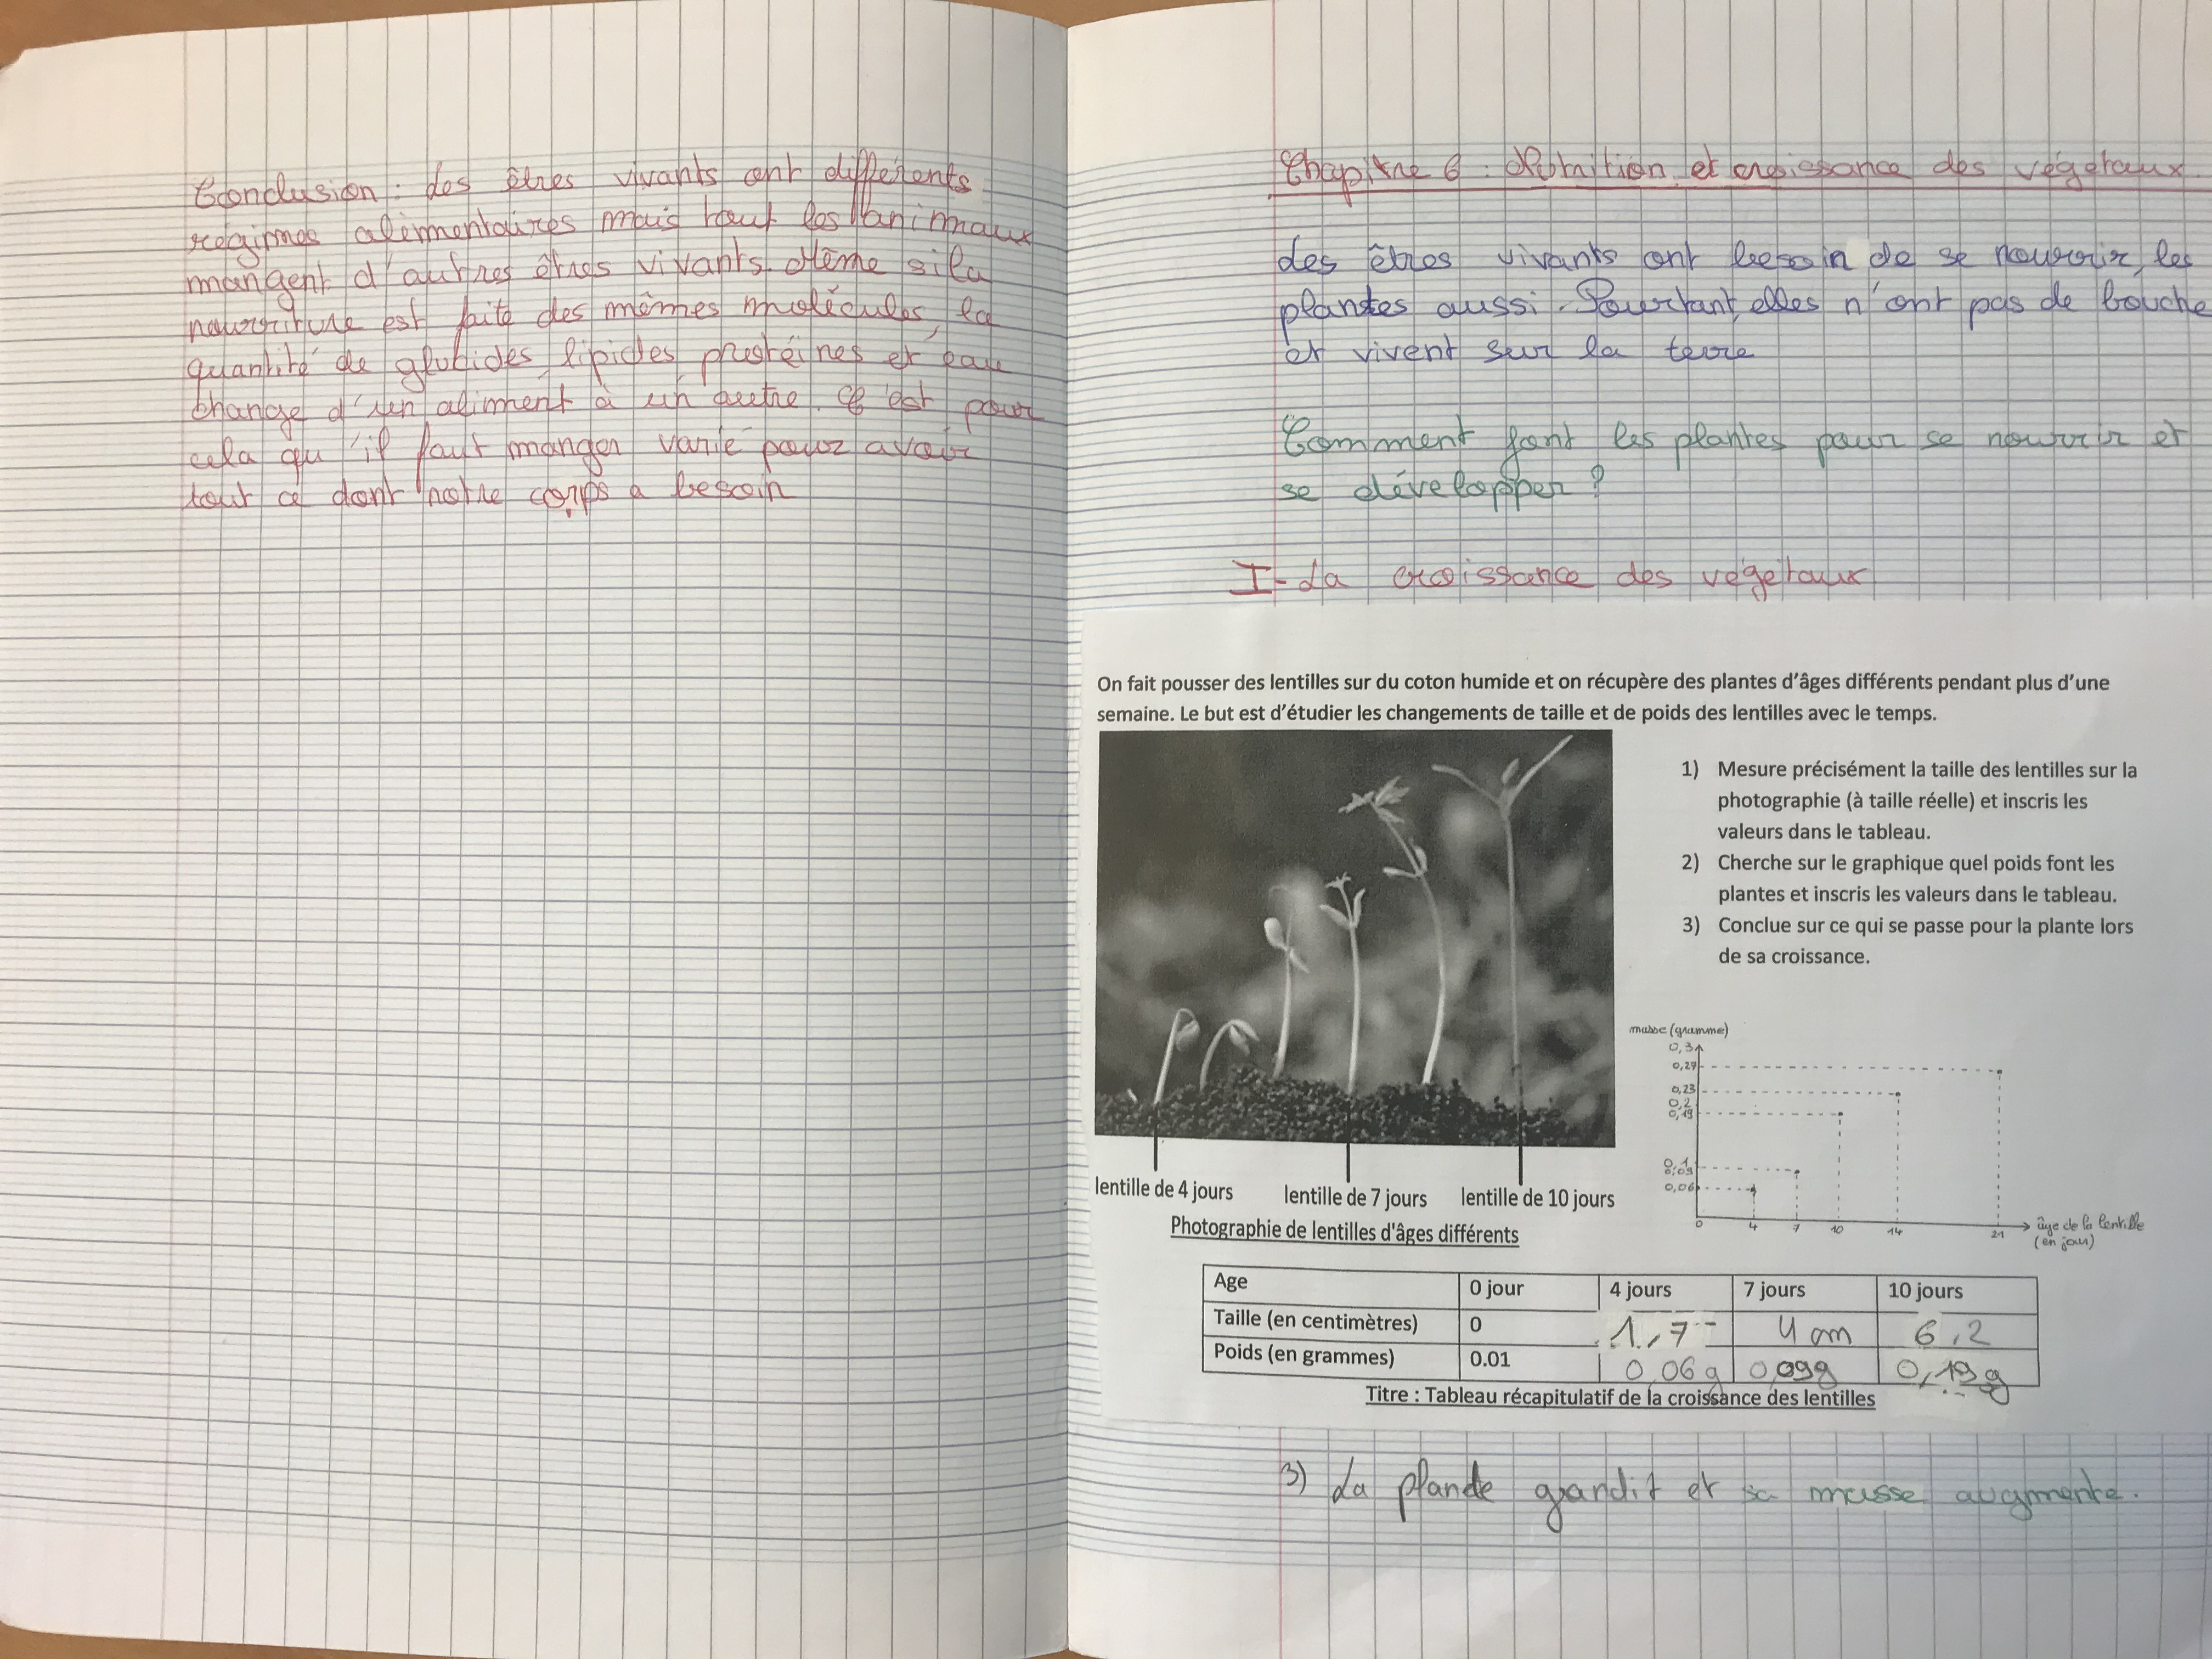 Conclusion : Les êtres vivants ont différents
régimes alimentaires mais tout les animaux
mangent d'autres êtres vivants. Même si la
nourriture est faite des mêmes molécules, la
quantité de glucides, lipides, protéines et eau
change d'un aliment à un autre. C'est pour
cela qu'il faut manger varié pour avoir
tout ce dont notre corps a besoin
Chapitre 6 : Nutrition et croissance des végétaux.
Les êtres vivants ont besoin de se nourrir, les
plantes aussi. Pourtant, elles n'ont pas de bouche
et vivent sur la terre
Comment font les plantes pour se nourrir et
se développer ?
I - La croissance des végétaux
On fait pousser des lentilles sur du coton humide et on récupère des plantes d'âges différents pendant plus d'une
semaine. Le but est d'étudier les changements de taille et de poids des lentilles avec le temps.
1) Mesure précisément la taille des lentilles sur la
photographie (à taille réelle) et inscris les
valeurs dans le tableau.
2) Cherche sur le graphique quel poids font les
plantes et inscris les valeurs dans le tableau.
3) Conclue sur ce qui se passe pour la plante lors
de sa croissance.
masse (gramme)
0,3
0,27
0,23
0,2
0,19
0,1
0,09
0,06
0 4 7 10 14 21
âge de la lentille
(en jour)
lentille de 4 jours lentille de 7 jours lentille de 10 jours
Photographie de lentilles d'âges différents
Age 0 jour 4 jours 7 jours 10 jours
Taille (en centimètres) 0 1,7 4 cm 6,2
Poids (en grammes) 0.01 0,06g 0,09g 0,19g
Titre : Tableau récapitulatif de la croissance des lentilles
3) La plante grandit et sa masse augmente.